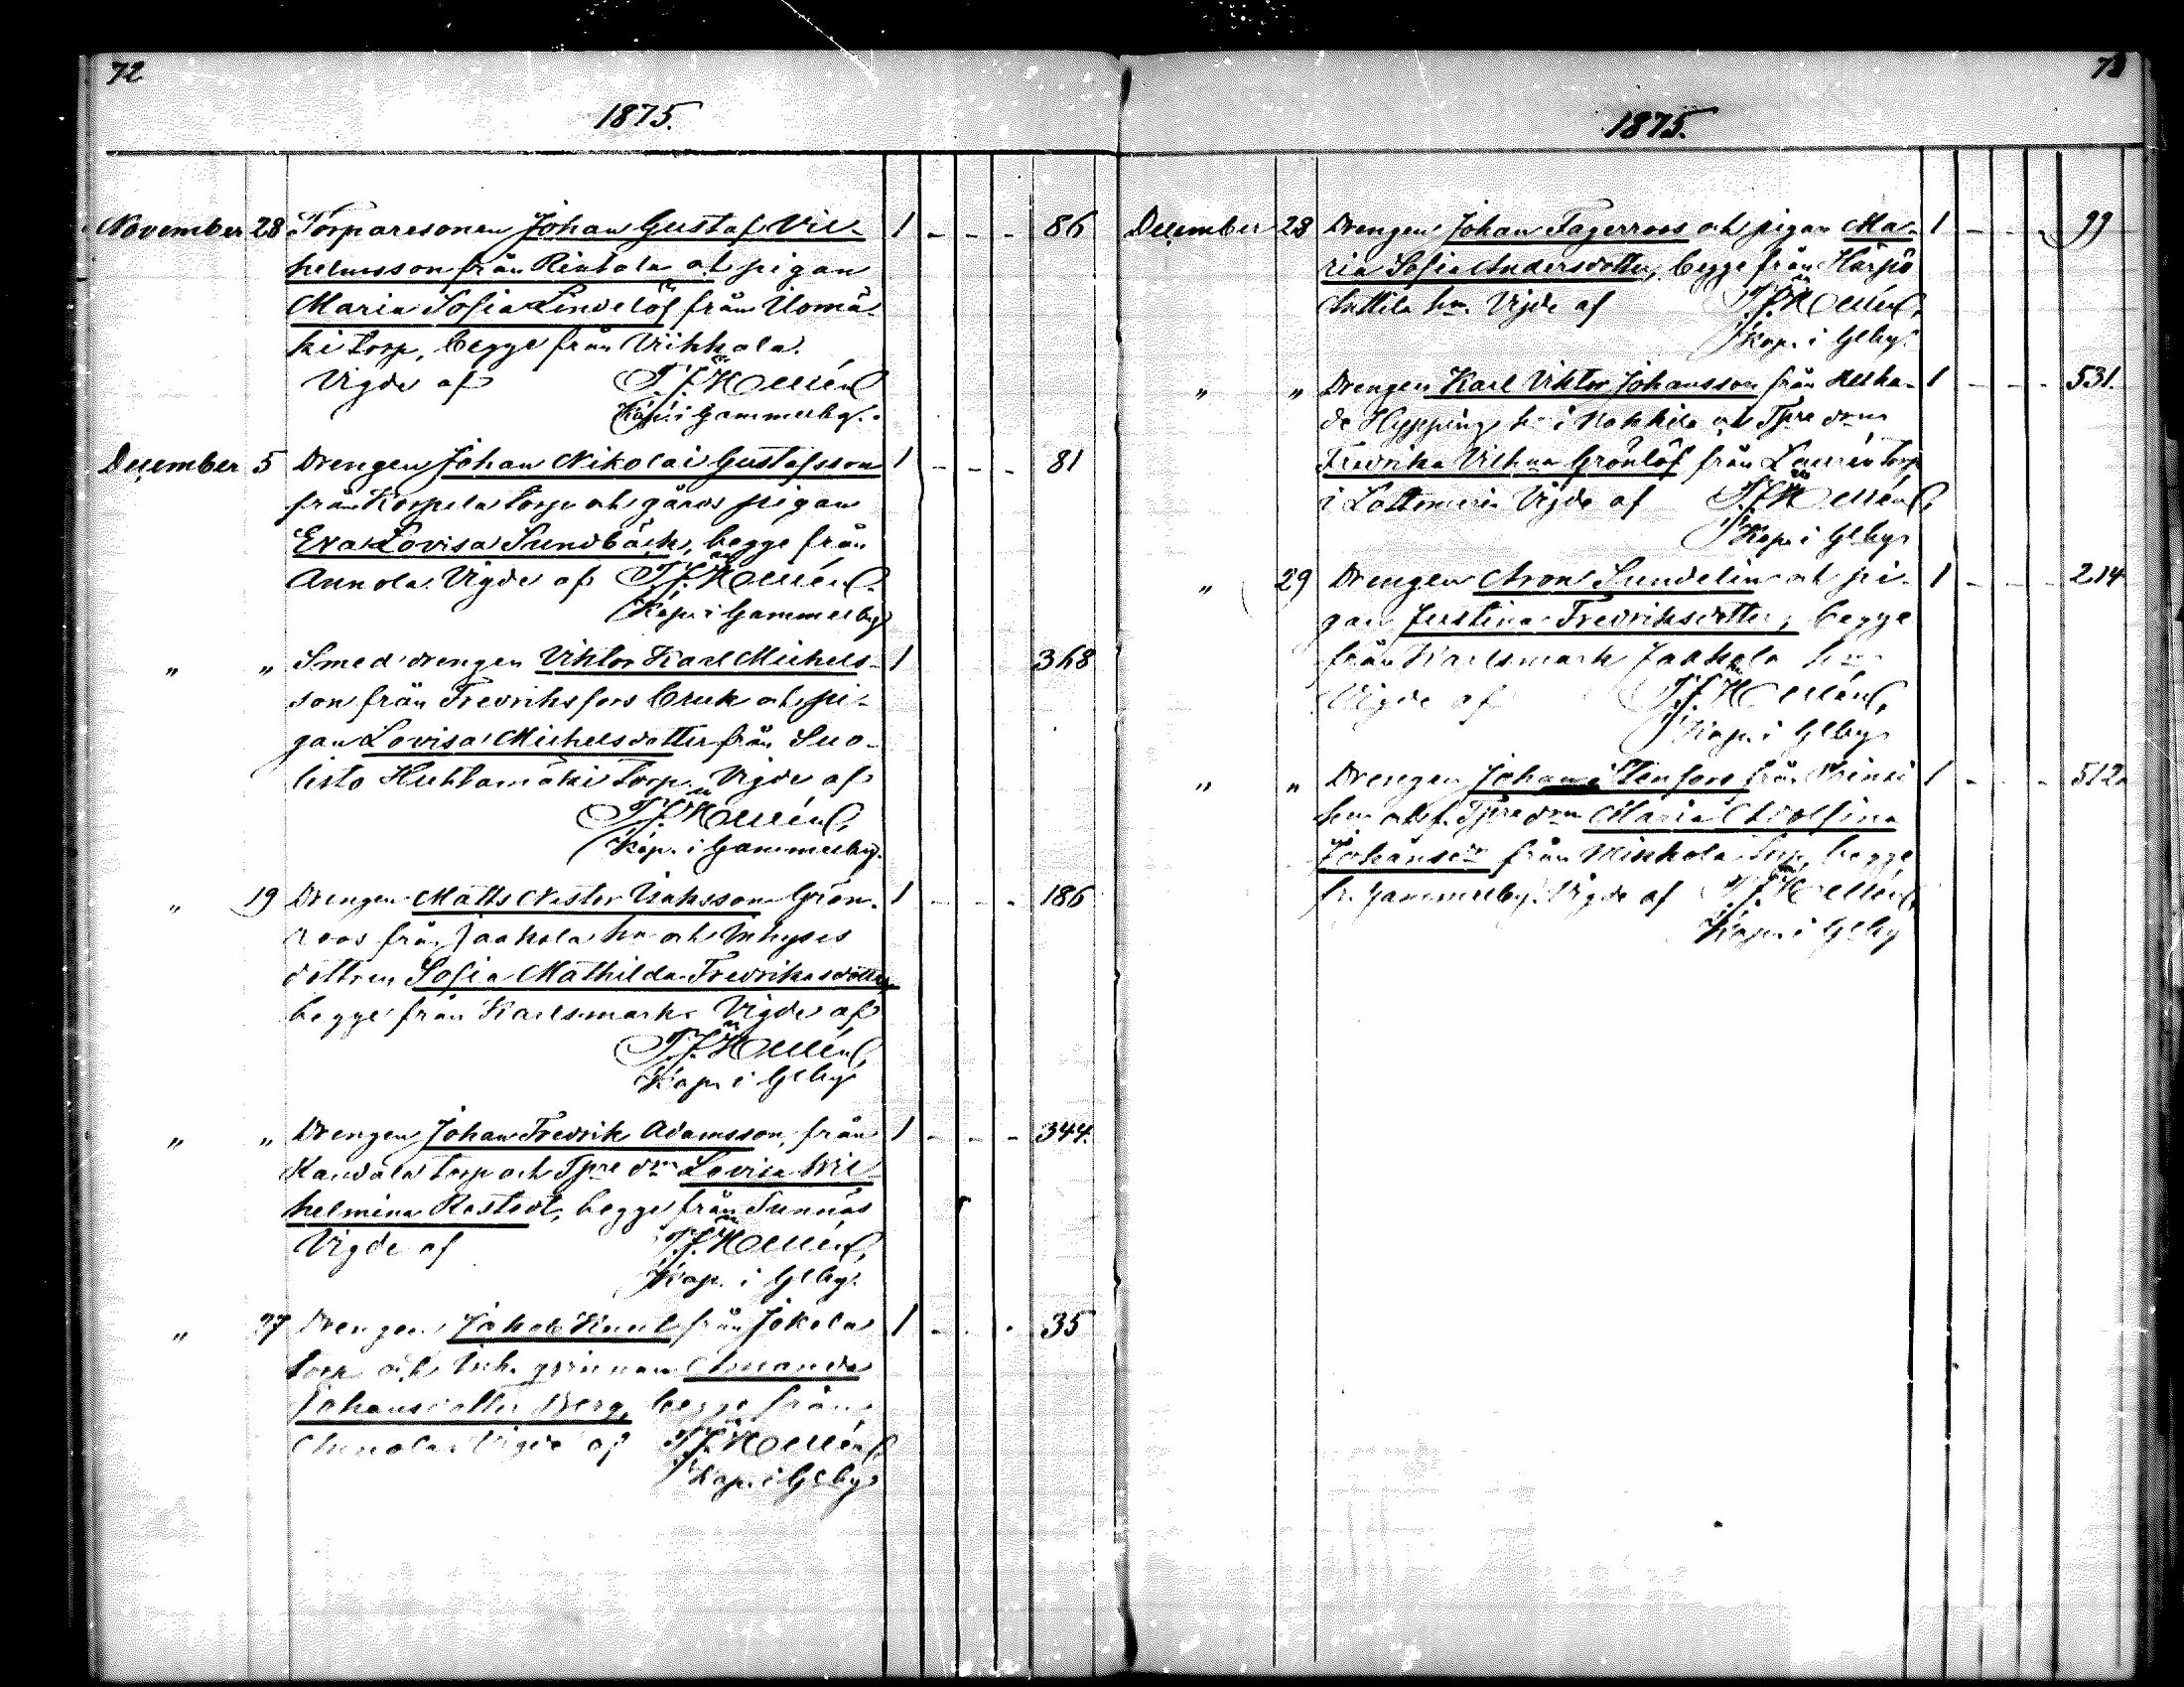 72
1875.
November 28 Torparesonen Johan Gustaf Vil- 1 - - - 86
helmsson från Rintala och pigan
Maria Sofia Lindelöf från Uomä-
ki torp, begge från Viikkala.
Vigde af T. J. Hollmén
Kap. i Gammelby.
December 5 Drengen Johan Nikolai Gustafsson 1 - - - 81
från Korpela torp och gårds pigan
Eva Lovisa Sundbäck, begge från
Annola. Vigde af T. J. Hollmén
Kap. i Gammelby
" " Smeddrengen Viktor Karl Michels- 1 368
son från Fredriksfors bruk och pi-
gan Lovisa Michelsdotter från Suo-
listo Huhtamäki Torp. Vigde af
T. J. Hollmén,
Kap. i Gammelby.
" 19 Drengen Matts Nestor Isaksson Grön- 1 - - - 186
roos från Jaakola hn och Inhyses
dottren Sofia Mathilda Fredriksdotter
begge från Karlsmark. Vigde af
T. J. Hollmén,
Kap. i Glby
" " Drengen Johan Fredrik Adamsson, från 1 - - - 344.
Kandola torp och Tpre drn Lovisa Wil-
helmina Rostedt, begge från Sunnäs
Vigde af T. J. Hollmén,
Kap. i Glby.
" 27 Drengen Jakob Knul från Jokela 1 - - - 35
torp och Inh. qvinnan Amanda
Johansdotter Berg, begge från
Annola. Vigde af T. J. Hollmén
Kap. i Glby
73
1875.
December 28 Drengen Johan Fagerroos och pigan Ma- 1 - - - 99
ria Sofia Andersdotter, begge från Harjo
Anttila hn. Vigde af T. J. Hollmén,
Kap. i Glby.
" " Drengen Karl Viktor Johansson från 1 - - - 531.
de Hypping hn i Nakkila och Tpre drn
Fredrika Vilhna Grönlöf från Laurén torp
i Lattomeri. Vigde af T. J. Hollmén,
Kap. i Glby
" 29 Drengen Aron Sundelin och pi- 1 - - - 214
gan Justina Fredriksdotter, begge
från Karlsmark Jaakola hn
Vigde af T. J. Hollmén,
Kap. i Glby
" " Drengen Johan Stenfors från Prinsi 1 - - 512
hn och f. Tpre drn Maria Adolfina
Johansdr från Minkola Torp, begge
fr. Gammelby. Vigde af T. J. Hollmén,
Kap. i Glby